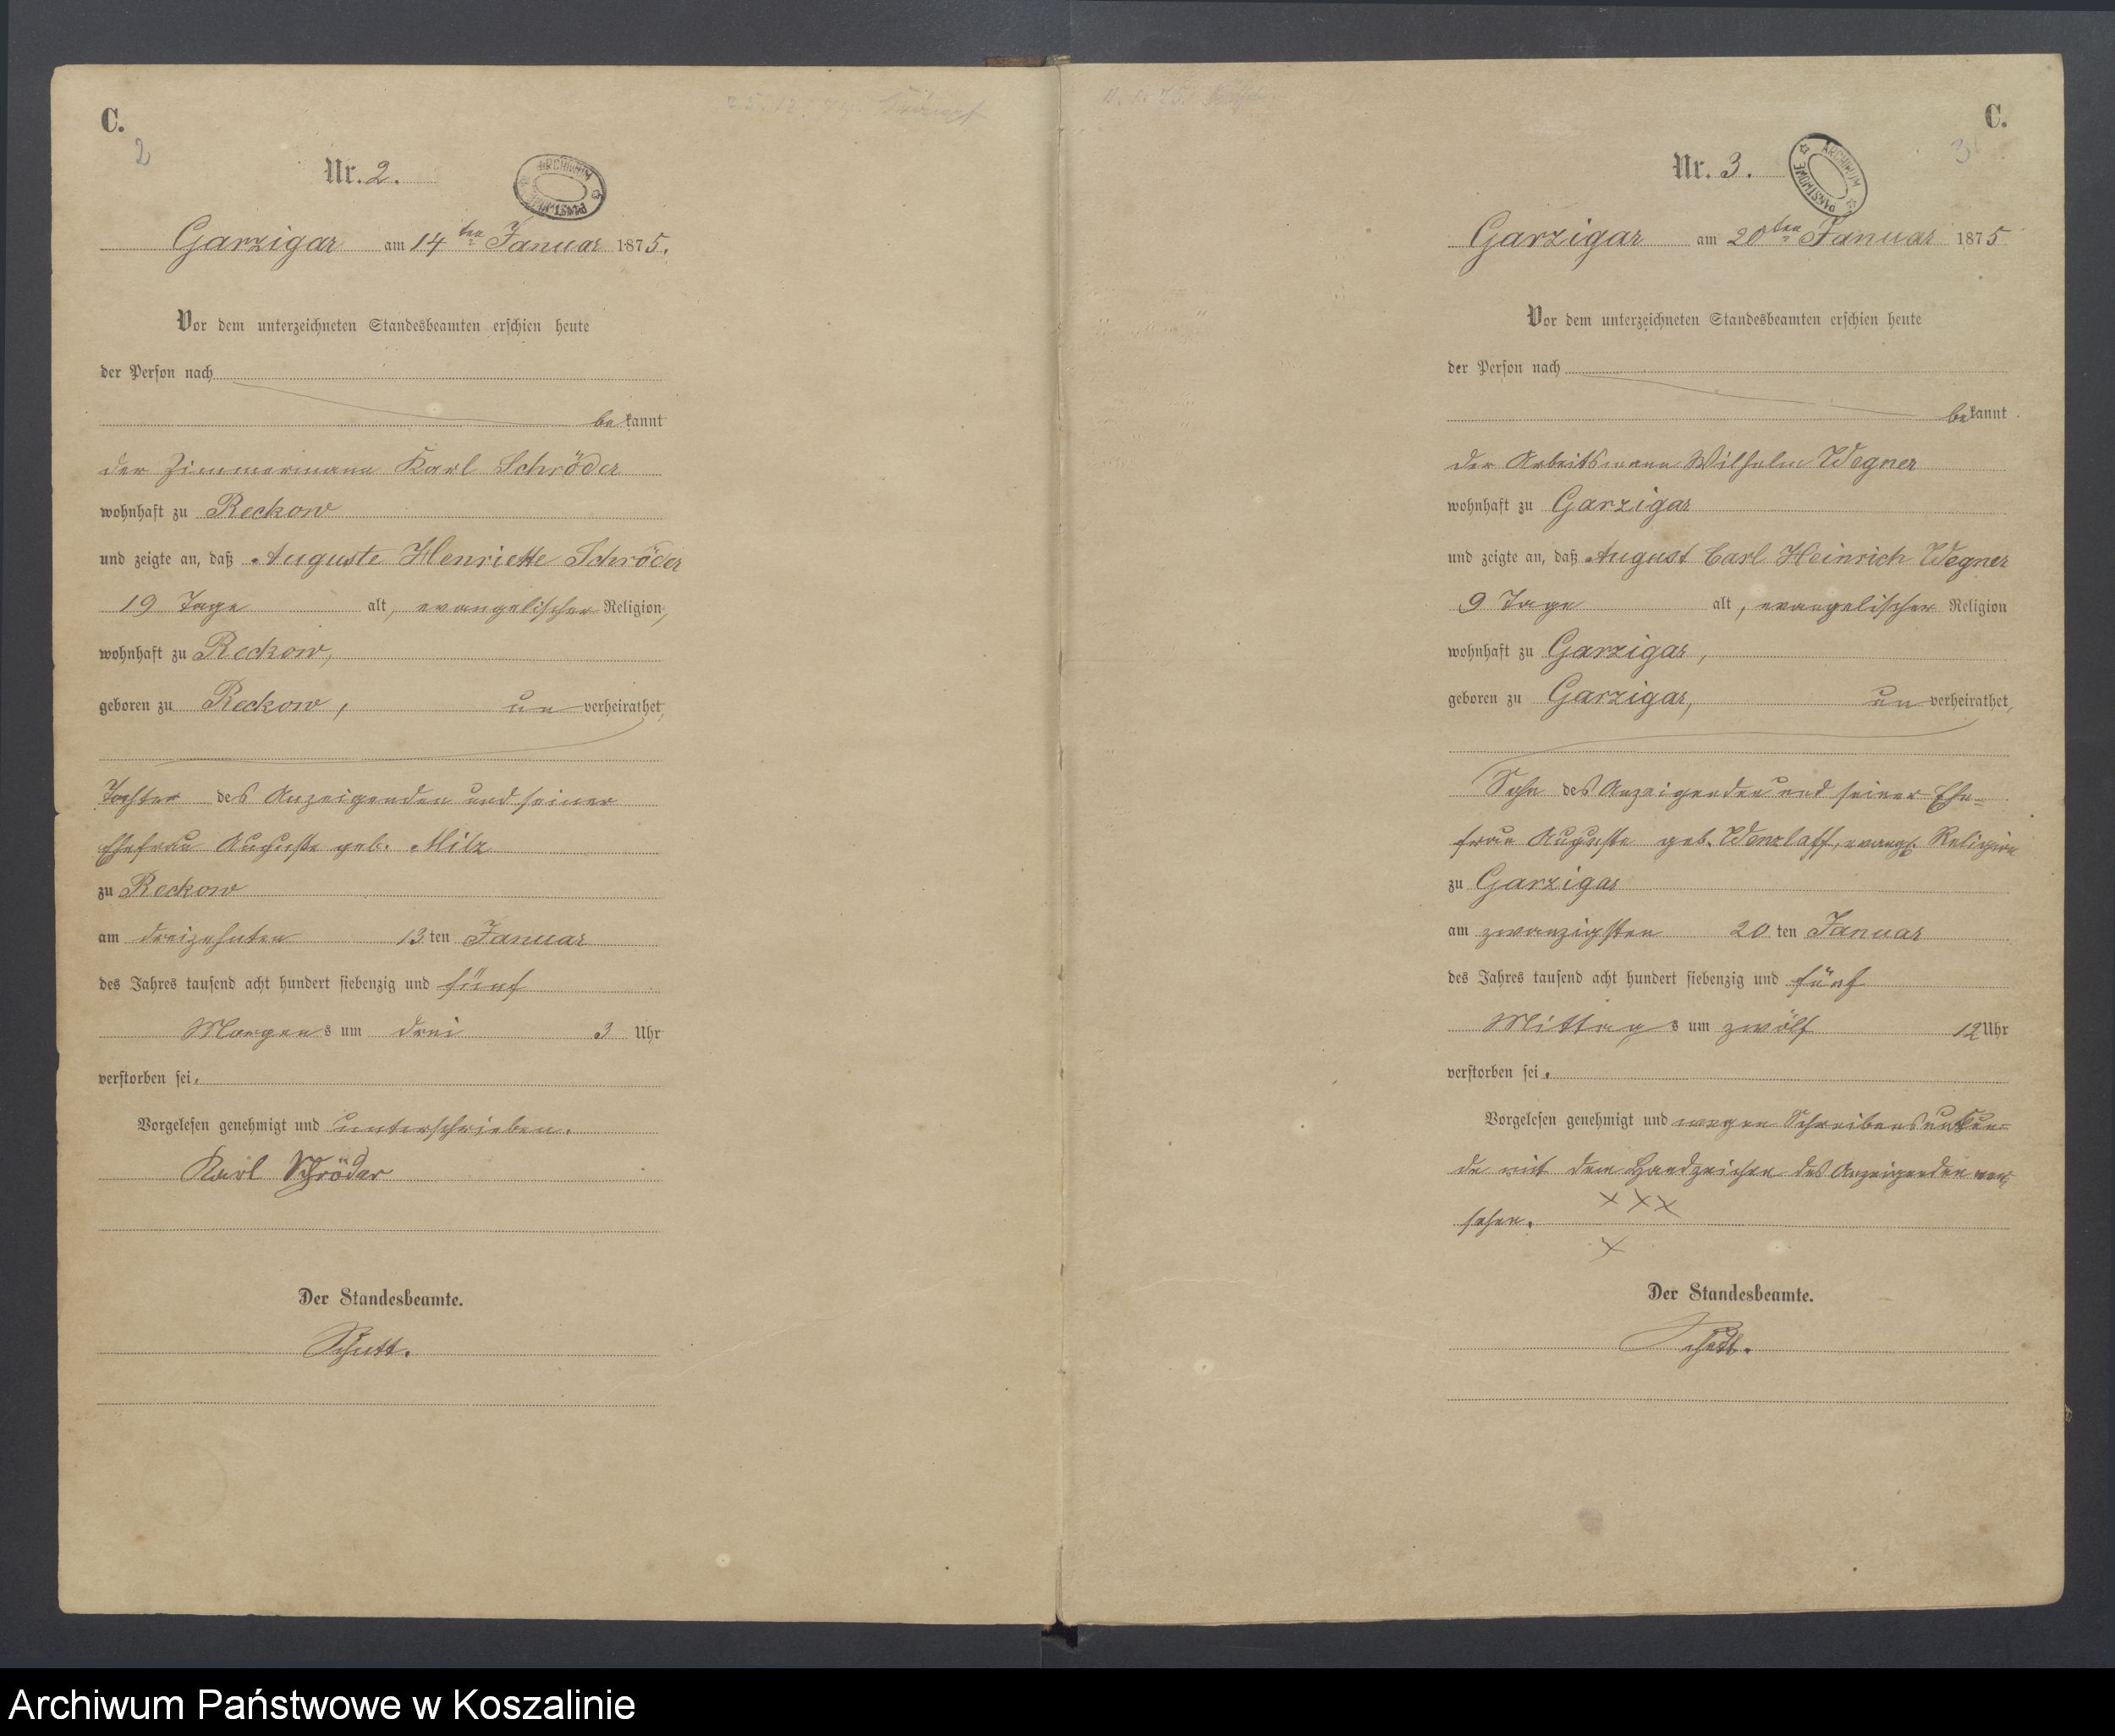 C.
2
Nr. 2.
ARCHIWUM PAŃSTWOWE
Garzigar am 14ten Januar 1875.
Vor dem unterzeichneten Standesbeamten erschien heute
der Person nach
bekannt
der Zimmermann Karl Schröder
wohnhaft zu Reckow
und zeigte an, daß Auguste Henriette Schröder
19 Tage alt, evangelischer Religion,
wohnhaft zu Reckow,
geboren zu Reckow, unverheirathet,
Tochter des Anzeigenden und seiner
Ehefrau Auguste geb. Milz
zu Reckow
am dreizehnten 13ten Januar
des Jahres tausend acht hundert siebenzig und fünf
Morgens um drei 3 Uhr
verstorben sei.
Vorgelesen genehmigt und unterschrieben.
Karl Schröder
Der Standesbeamte.
Schutt.
C.
3
Nr. 3.
ARCHIWUM PAŃSTWOWE
Garzigar am 20ten Januar 1875
Vor dem unterzeichneten Standesbeamten erschien heute
der Person nach
bekannt
der Arbeitsmann Wilhelm Wegner
wohnhaft zu Garzigar
und zeigte an, daß August Carl Heinrich Wegner
9 Tage alt, evangelischer Religion
wohnhaft zu Garzigar,
geboren zu Garzigar, unverheirathet,
Sohn des Anzeigenden und seiner Ehe-
frau Auguste geb. Wenzlaff, evangl. Religion
zu Garzigar
am zwanzigsten 20ten Januar
des Jahres tausend acht hundert siebenzig und fünf
Mittags um zwölf 12 Uhr
verstorben sei.
Vorgelesen genehmigt und wegen Schreibensunkun-
de mit dem Handzeichen des Anzeigenden ver-
sehen. XXX
X
Der Standesbeamte.
Schutt.
Archiwum Państwowe w Koszalinie